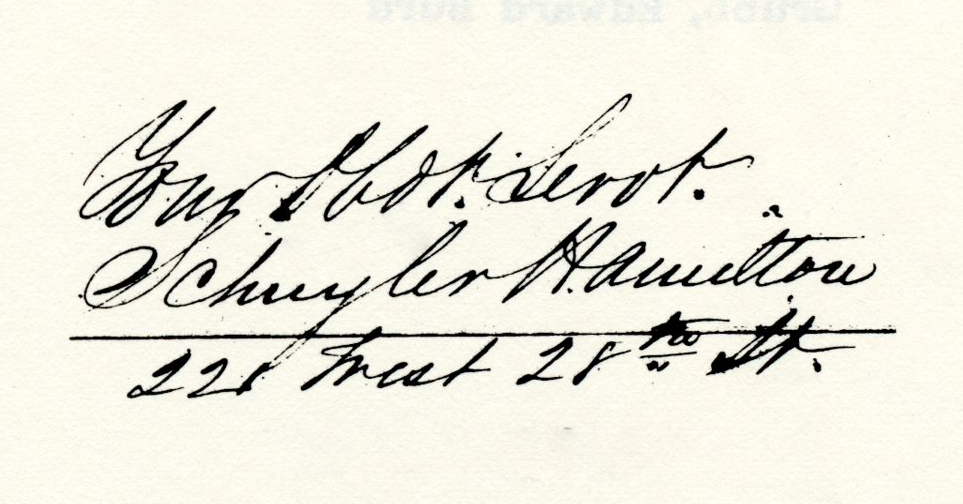 Grubb, Edward Burd
Your Obdt. Servt.
Schuyler Hamilton
221 West 28th St.